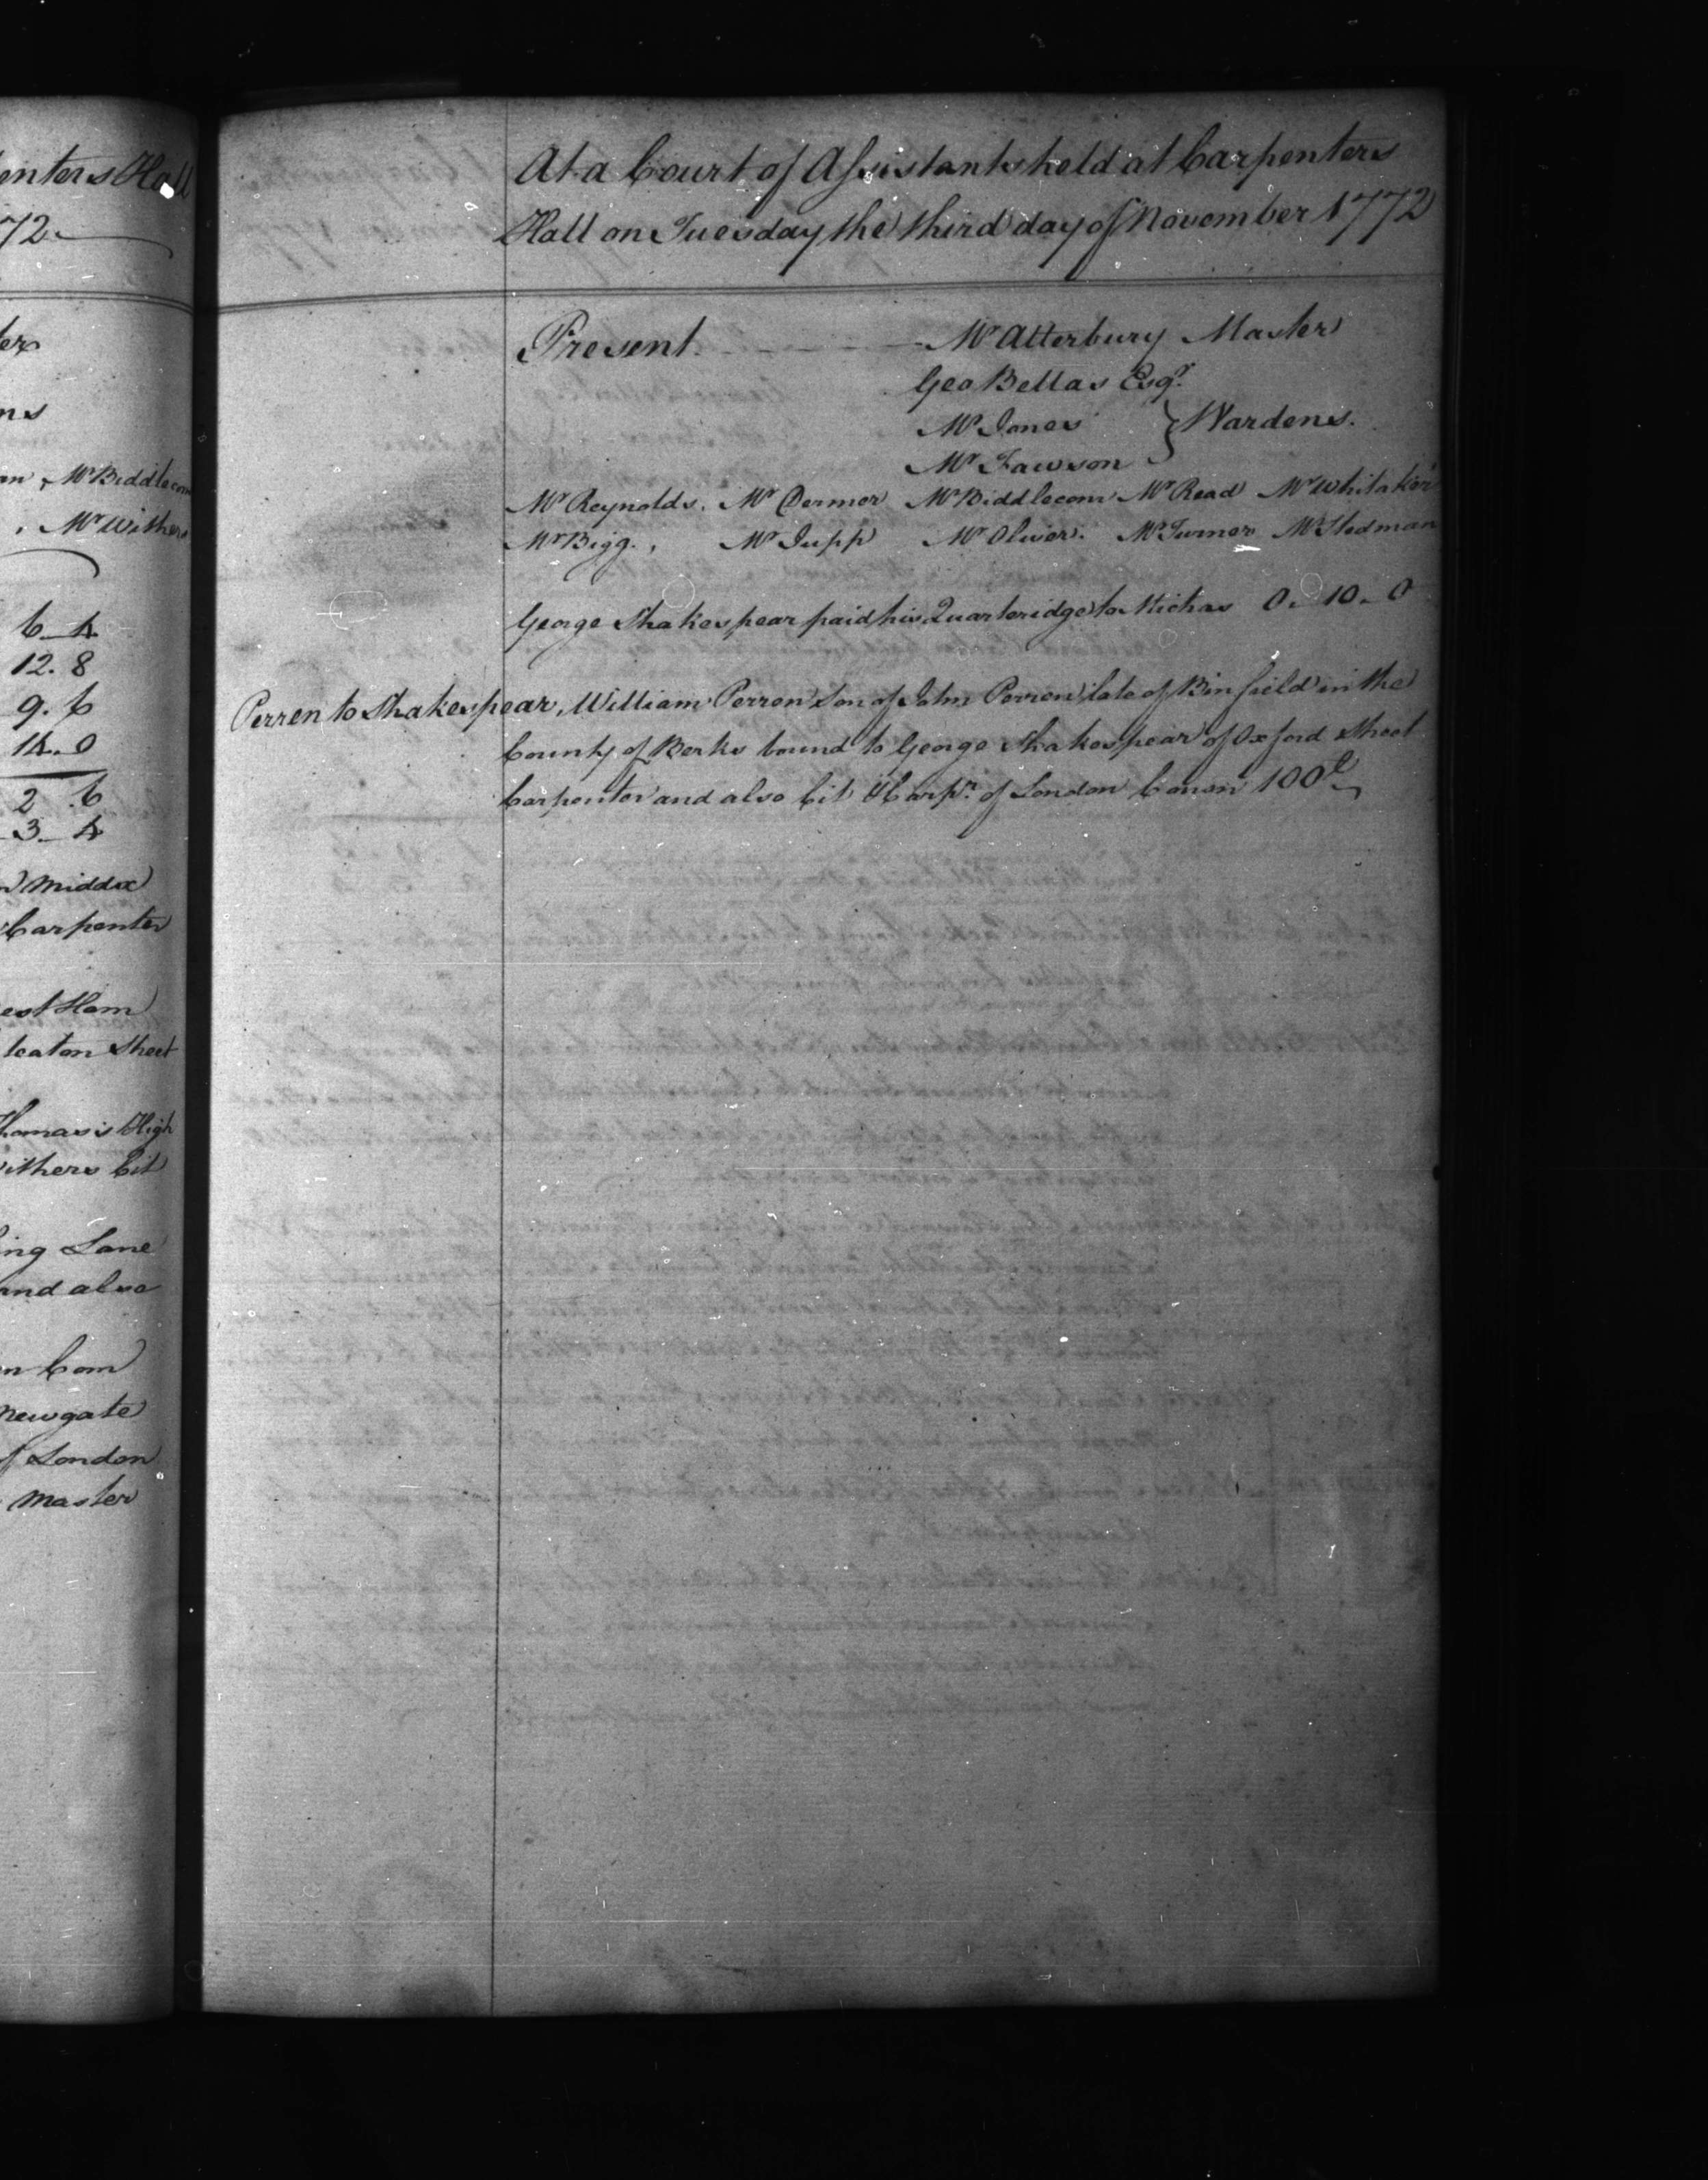 enters Hall
72.
ter
ns
an, Mr Biddlecom
, Mr Withers
6 - 4
12. 8
9. 6
14. 0
2 . 6
3 - 4
Middx
Carpenter
est Ham
Street
Thomas's High
ithers Cit
ing Lane
and also
n Com
Newgate
f London
Master
At a Court of Assistants held at Carpenters
Hall on Tuesday the third day of November 1772
Present. Mr Atterbury Master
Geo Bellas Esqr.
Mr Jones } Wardens.
Mr Fawson
Mr Reynolds. Mr Dermer Mr Biddlecom Mr Read Mr Whitaker
Mr Bigg., Mr Jupp Mr Oliver. Mr Turner Mr Stedman
George Shakespear paid his Quarteridge to Michas 0. 10. 0
Perren to Shakespear, William Perren Son of John Perren late of Binfield in the
County of Berks bound to George Shakespear of Oxford Street
Carpenter and also Cit & Carpr. of London Conson 100£